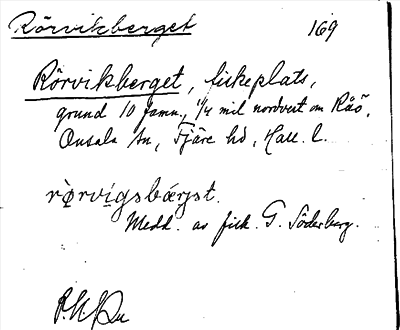 Rörvikberget 169
Rörvikberget, fiskeplats,
grund 10 famn., 1/4 mil nordvest om Råö,
Onsala sn, Fjäre hd, Hall. l.
rö̀rvígsbærjət.
Medd. av fisk. G. Söderberg.